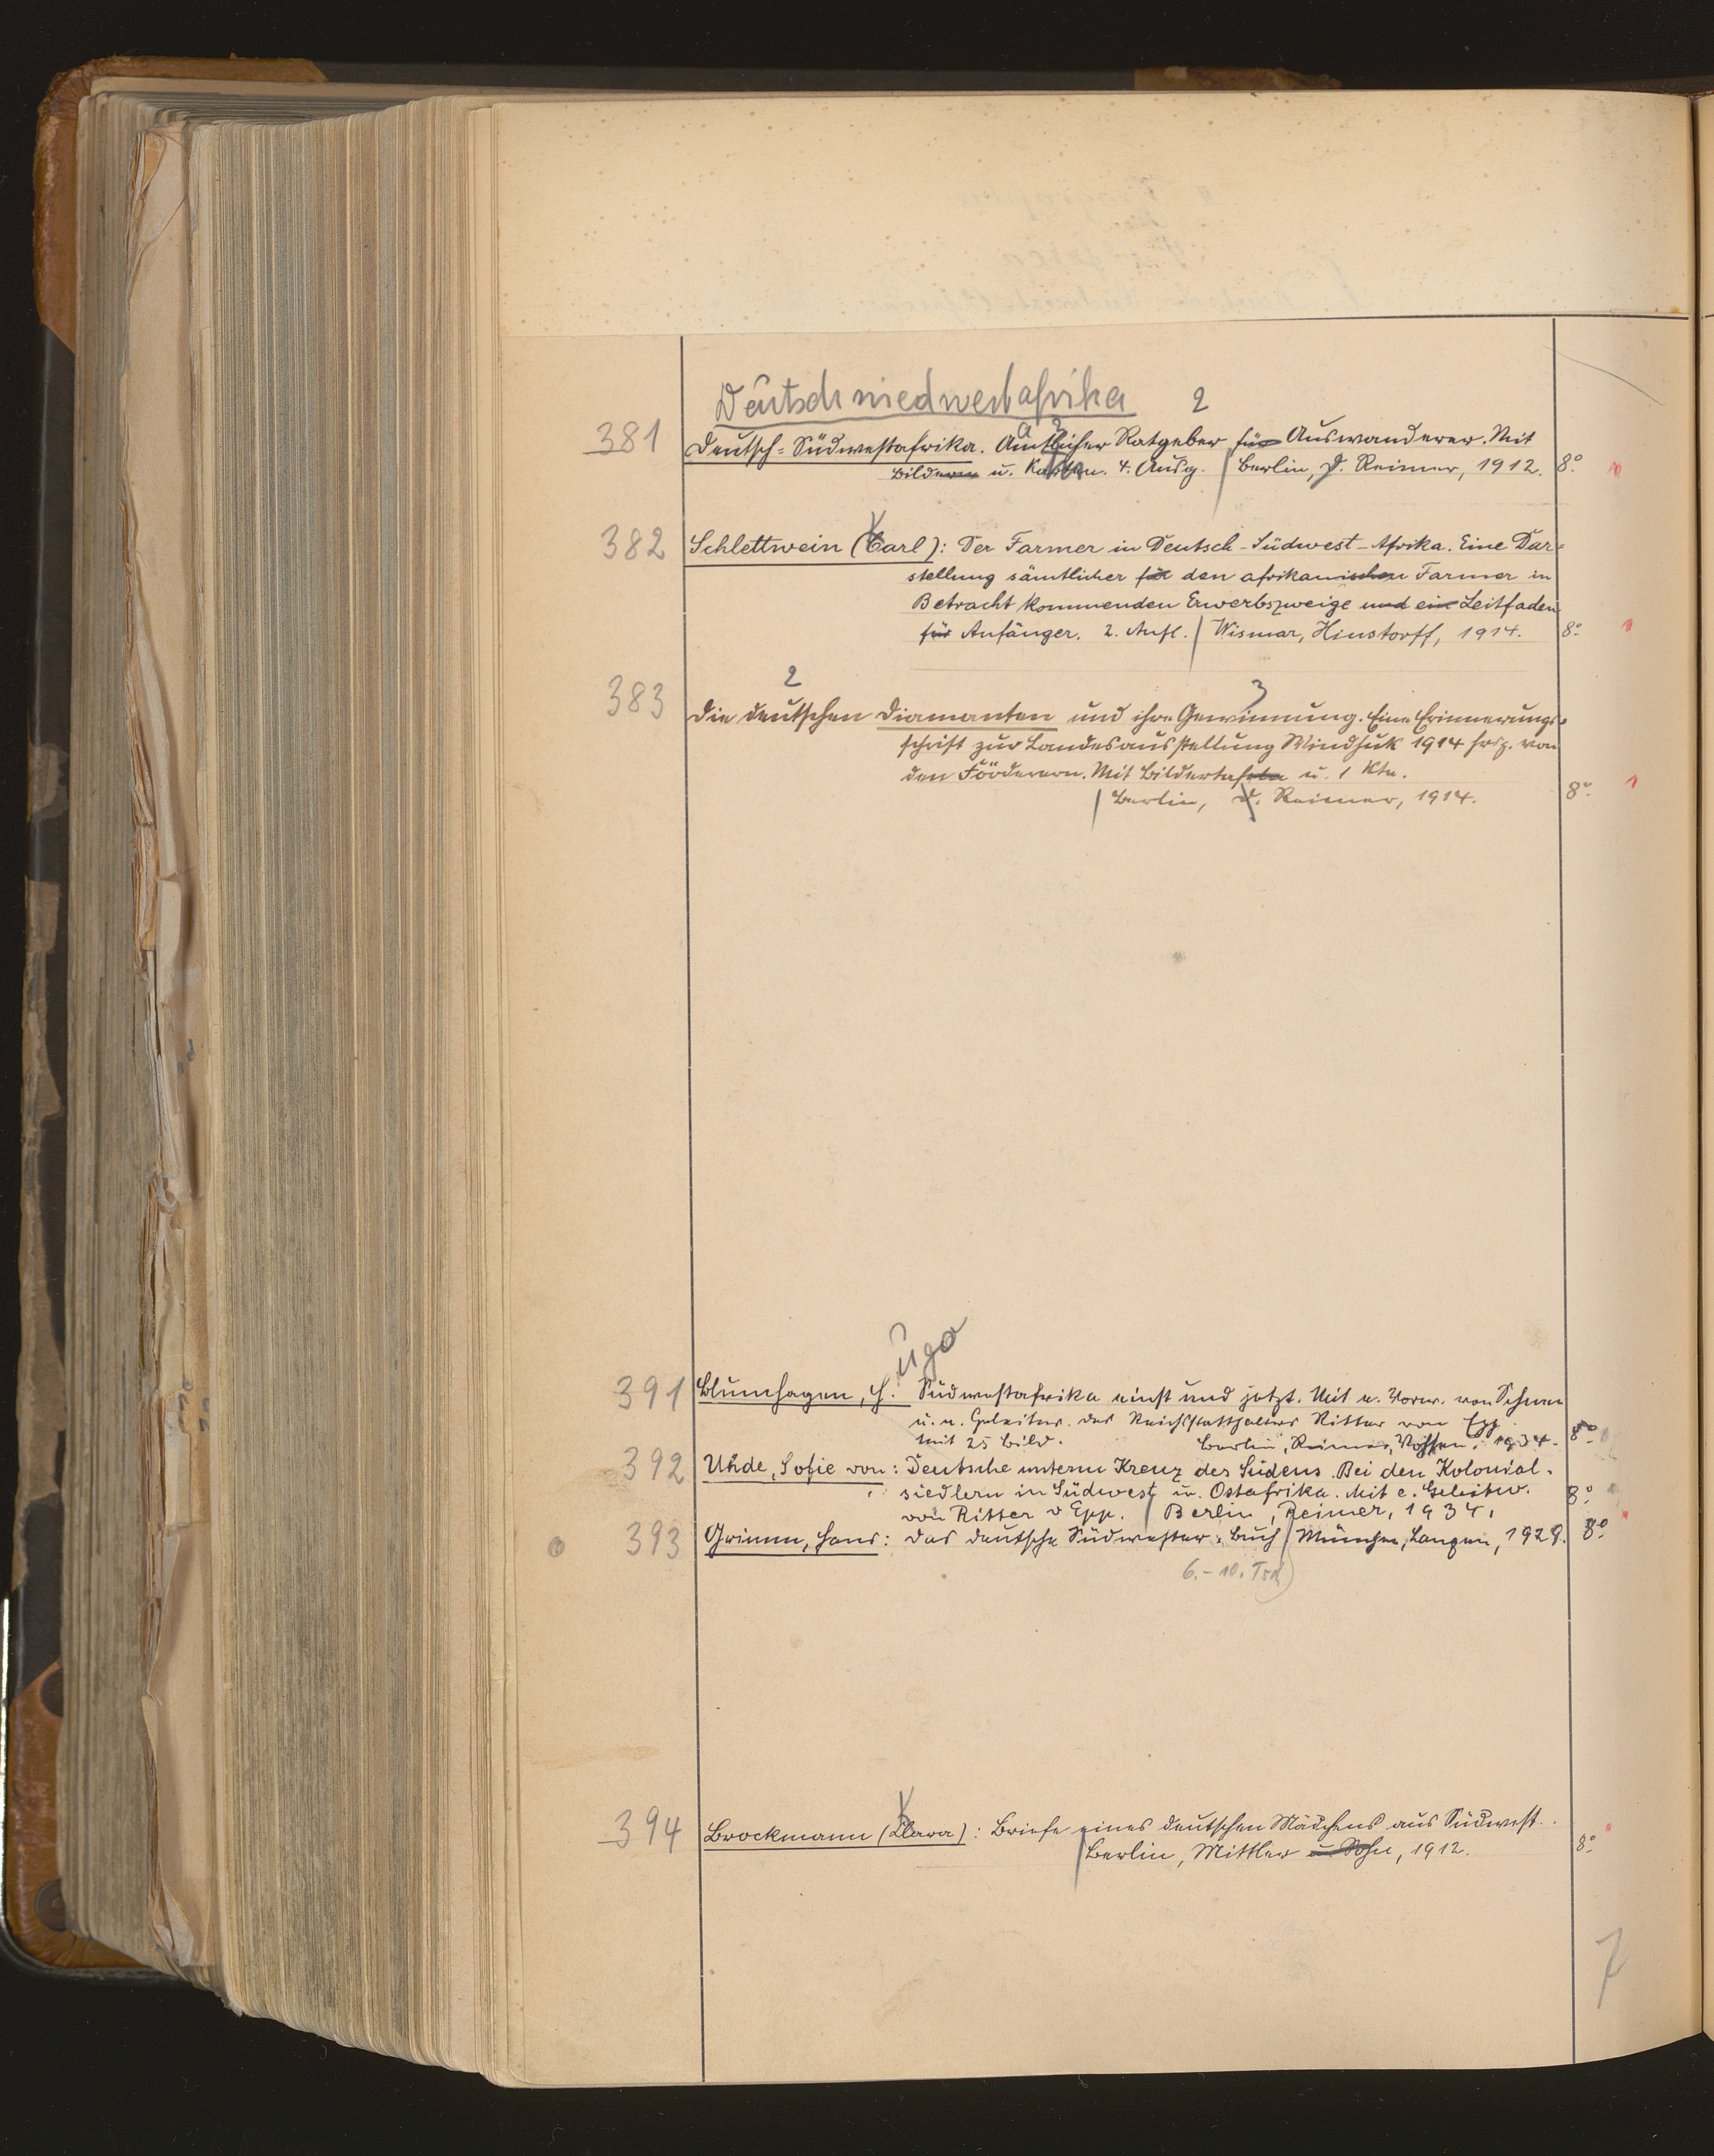 Deutsch Südwestafrika
2
a 3
381 Deutsch-Südwestafrika. Amtlicher Ratgeber für Auswanderer. Mit
Bildern u. Karten. 4. Ausg. / Berlin, D. Reimer, 1912. 8°.
382 Schlettwein (Carl): Der Farmer in Deutsch-Südwest-Afrika. Eine Dar=
stellung sämtlicher für den afrikanischen Farmer in
Betracht kommenden Erwerbszweige und ein Leitfaden
für Anfänger. 2. Aufl. / Wismar, Hinstorff, 1914. 8°.
2 3
383 Die deutschen Diamanten und ihre Gewinnung. Eine Erinnerungs=
schrift zur Landesausstellung Windhuk 1914 hrsg. von
den Förderern. Mit Bildertafeln u. 1 Kte.
/ Berlin, D. Reimer, 1914. 8°.
ugo
391 Blumhagen, H. Südwestafrika einst und jetzt. Mit e. Vorw. von Schnee
u. e. Geleitw. des Reichsstatthalters Ritter von Epp.
Mit 25 Bild. Berlin, Reimer, Vohsen, 1934. 8°.
392 Uhde, Sofie von: Deutsche unterm Kreuz des Südens. Bei den Kolonial-
siedlern in Südwest u. Ostafrika. Mit e. Geleitw. 8°.
von Ritter v Epp. / Berlin, Reimer, 1934.
o 393 Grimm, Hans: Das deutsche Südwester-Buch / München, Langen, 1929. 8°.
6.-10. Tsd
394 Brockmann (Clara): Briefe eines deutschen Mädchens aus Südwest.
/ Berlin, Mittler u. Sohn, 1912. 8°.
7